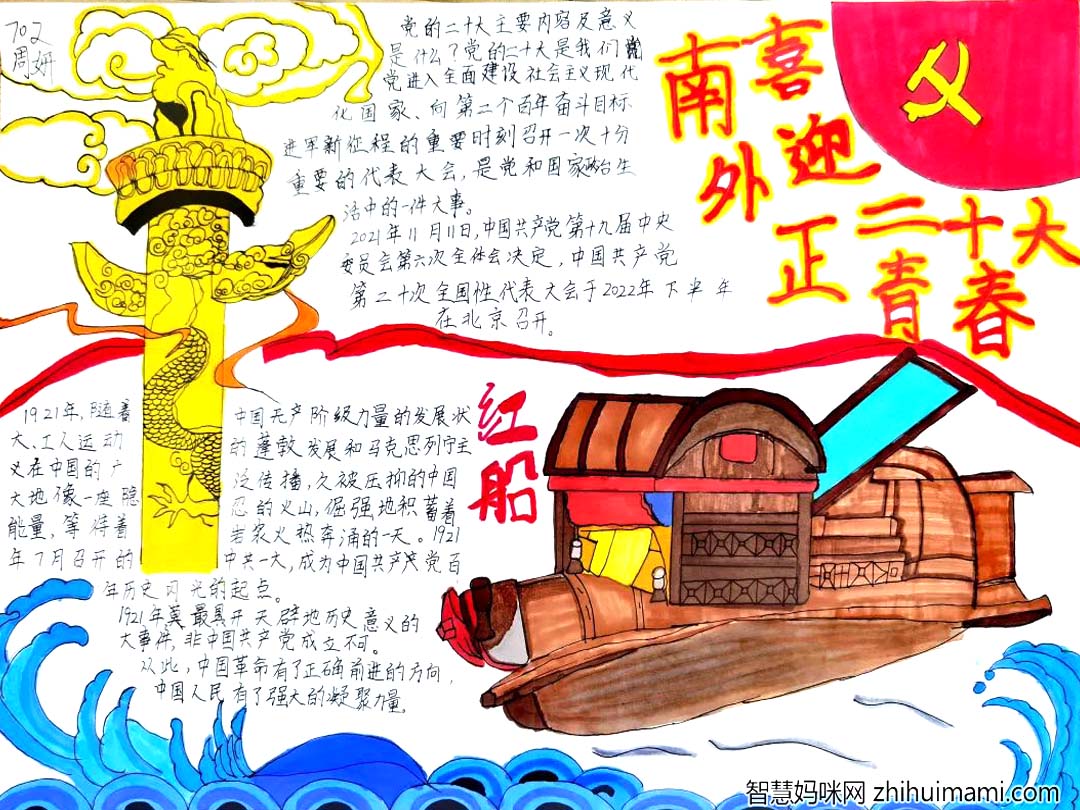 702
周妍
喜迎二十大
南外正青春
党的二十大主要内容及意义
是什么?党的二十大是我们党
党进入全面建设社会主义现代
化国家、向第二个百年奋斗目标
进军新征程的重要时刻召开一次十分
重要的代表大会,是党和国家政治生
活中的一件大事。
2021年11月11日,中国共产党第十九届中央
委员会第六次全体会决定,中国共产党
第二十次全国性代表大会于2022年下半年
在北京召开。
红船
1921年,随着 中国无产阶级力量的发展状
大、工人运动 的蓬敦发展和马克思列宁主
义在中国的广 泛传播,久被压抑的中国
大地像一座隐 忍的火山,倔强地积蓄着
能量,等待着 岩浆火热奔涌的一天。1921
年7月召开的 中共一大,成为中国共产党百
年历史闪光的起点。
1921年莫最具开天辟地历史意义的
大事件,非中国共产党成立不可。
从此,中国革命有了正确前进的方向,
中国人民有了强大的凝聚力量。
智慧妈咪网 zhihuimami.com